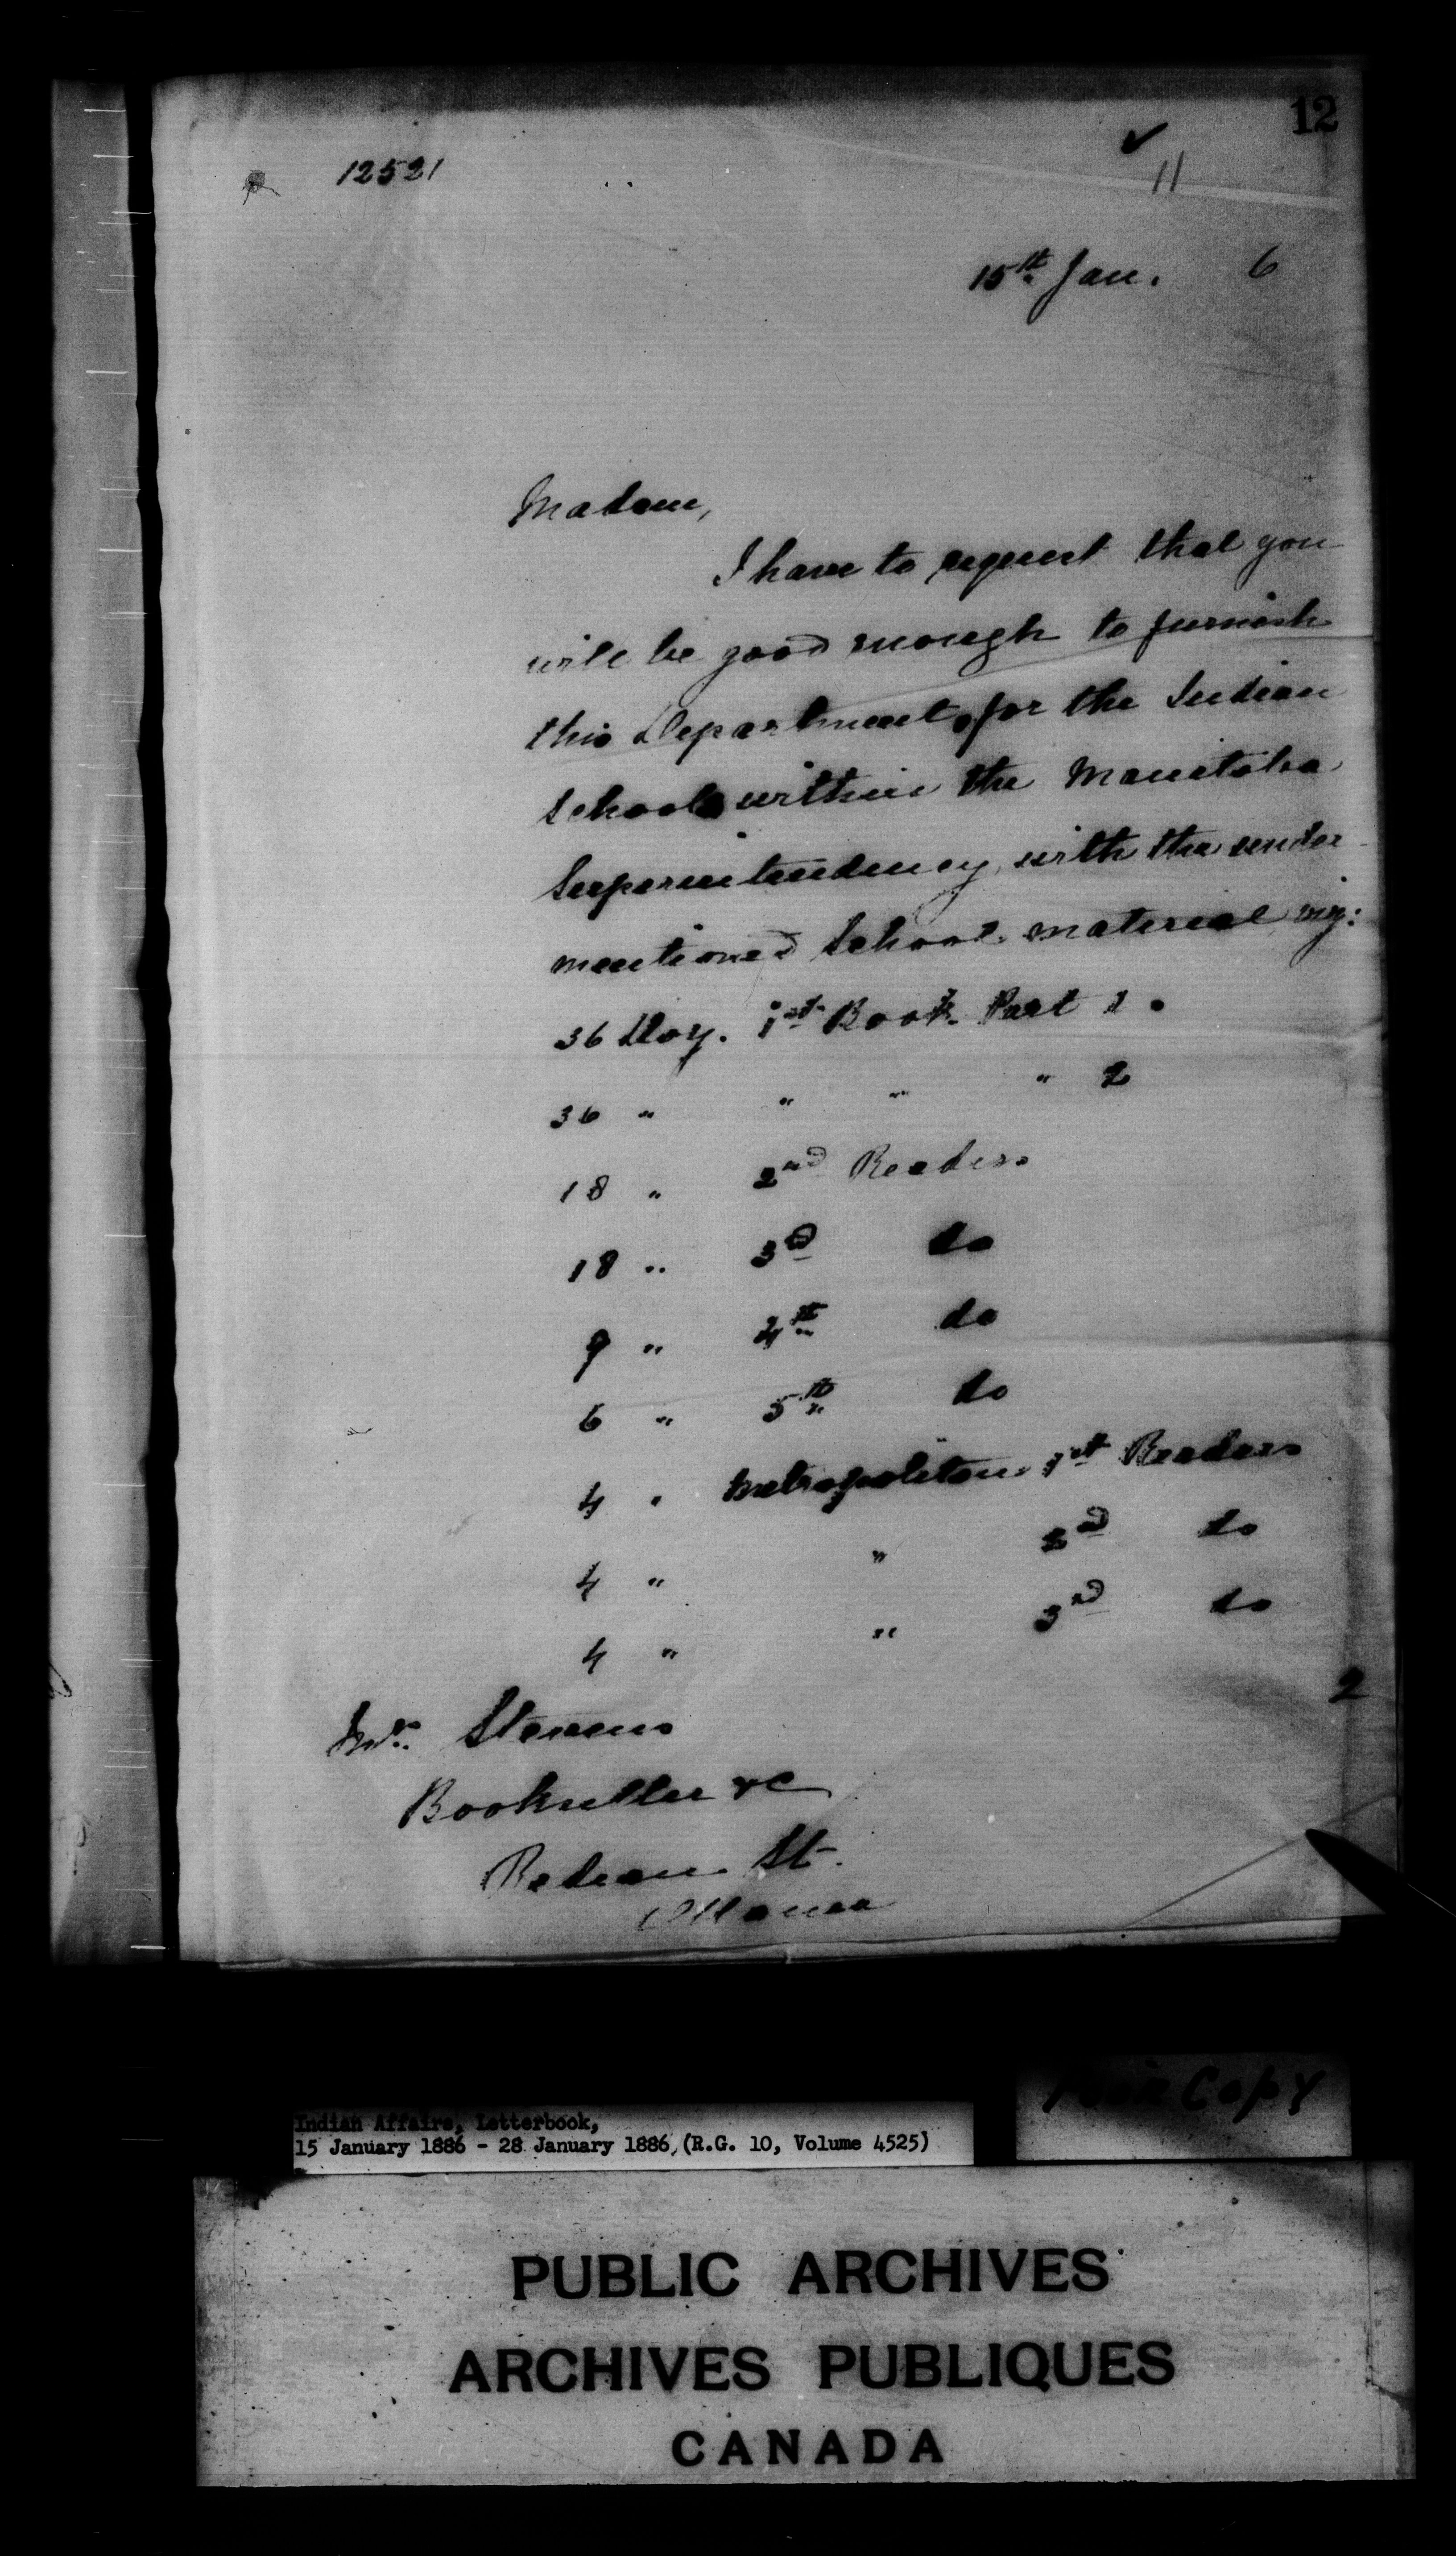 12
12521
11
15th Jan. 6
Madam,
I have to request that you
will be good enough to furnish
this Department, for the Indian
Schools within the Manitoba
Superintendency, with the under
mentioned School material viz:
36 Doz. 1st Book Part 1.
36 " " " " 2
18 " 2nd Readers
18 " 3d do
9 " 4th do
6 " 5th do
4 " Metropolitan 1st Readers
4 " " 2nd do
4 " " 3rd do
2
Mrs. Stevens
Bookseller &c
Rideau St.
Ottawa
Poor Copy
Indian Affairs, Letterbook,
15 January 1886 - 28 January 1886, (R.G. 10, Volume 4525)
PUBLIC ARCHIVES
ARCHIVES PUBLIQUES
CANADA